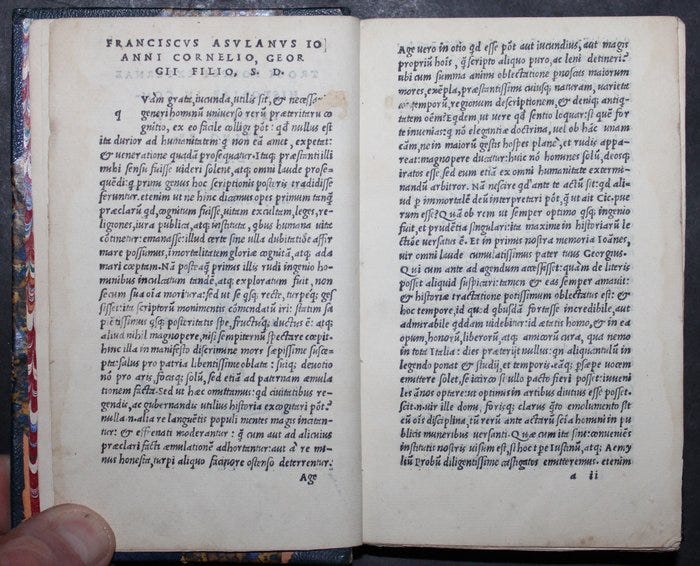 FRANCISCVS ASVLANVS IO
ANNI CORNELIO, GEOR
GII FILIO, S. D.
q
Vàm grata, iucunda, utilis sit, & necessari
generi hominũ universo rerũ præteritarũ co
gnitio, ex eo facile colligi põt: qđ nullus est
ita durior ad humanitatem q̃ non eã amet, expetat:
& veneratione quadã prosequatur. Itaq; præstanti illi
mihi sensu fuisse uideri solent, atq; omni laude prose-
quēdi: q primi genus hoc scriptionis posteris tradidisse
feruntur. etenim ut ne hinc dicamus opes primum tanq̃
præclarũ qđ, cognitum fuisse, uitam excultam, leges, re-
ligiones, iura publica, atq; instituta, qbus humana uita
cõtinetur: emanasse: illud certe sine ulla dubitatiõe affir
mare possumus, immortalitatem gloriæ cognitã, atq; ada
mari cœptam. Nã posteaq̃ primus illis rudi ingenio ho-
minibus inculcatum tandē, atq; exploratum fuit, non
secum sua oīa moritura: sed ut se qsq; recte, turpeq; ges
sisset: ita scriptorũ monimentis cõmendatũ iri: statim sa
pientissimus qsq; posteritatis spe, fructuq; ductus ē: atq;
aliud nihil magnopere, nisi sempiternũ spectare cœpit.
hinc illa in manifesto discrimine mors sæpissime suscæ-
pta: salus pro patria libentissime oblata: suiq; deuotio
nõ pro aris, focisq; solũ, sed etiã ad paternam æmula
tionem facta. Sed ut hæc omittamus: qđ ciuitatibus re-
gendis, ac gubernandis utilius historia excogitari põt?
nulla n. alia re languētis populi mentes magis incitan-
tur: & effrenati moderantur: q̃ cum aut ad alicuius
præclari facti æmulationē adhortantur: aut à re mi-
nus honesta, turpi aliquo facinore ostenso deterrentur.
Age
Age uero in otio qđ esse põt aut iucundius, aut magis
propriũ hoīs, q̃ scripto aliquo puro, ac leni detineri?
ubi cum summa animi oblectatione pnoscas maiorum
mores, exēpla, præstantissimi cuiusq; naturam, uarieta
tem temporũ, regionum descriptionem, & deniq; antiq-
tatem oēm? Eqdem ut uere qđ sentio loquar: si quē for
te inueniar: q nõ elegantia doctrina, uel ob hãc unam
cãm, ne in maiorũ gestis hospes planè, et rudis appa-
reat: magnopere ducatur: huic nõ homines solũ, deosq;
iratos esse, sed eum etiã ex omni humanitate extermi-
nandũ arbitror. Nã nescire qđ ante te actũ sit: qđ aliu-
ud p immortalē deũ interpretari põt, q̃ ut ait Cic. pue
rum esse? Quã ob rem ut semper optimo qsq; ingenio
fuit, et prudētia singulari: ita maxime in historiarũ le
ctiõe uersatus ē. Et in primis nostra memoria Ioānes,
uir omni laude cumulatissimus pater tuus Georgius.
Qui cum ante ad agendum accessisset: quàm de literis
posset aliquid suspicari: tamen & eas semper amauit:
& historiæ tractatione potissimum oblectatus est: &
hoc tempore, id qu-d qbusdã fortasse incredibile, aut
admirabile qddam uidebitur: id ætatis homo, & in ea
opum, honorũ, liberorũ, atq; amicorũ cura, qua nemo
in tota Italia: dies præterijt nullus: qn aliquantulũ in
legendo ponat & studij, et temporis. eāq; psæpe uocem
emittere solet, se icirco si ullo pacto fieri posset: iuueni
les ānos optare: ut optimis in artibus diutius esse posset.
scit. n. uir ille domi, forisq; clarus qto emolumento sit
cũ oīs disciplina, tũ rerũ ante actarũ scīa homini in pu
blicis muneribus uersanti. Quæ cum ita sint: conueniēs
institutis nostris uisum est, si hoc t pe Iustinũ, atq; Aemy
liũ Probũ diligentissime castigatos emitteremus. etenim
a ii